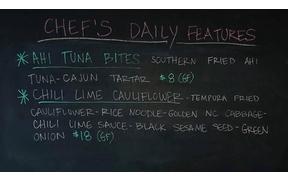 CHEF'S DAILY FEATURES
* AHI TUNA BITES SOUTHERN FRIED AHI
TUNA-CAJUN TARTAR $8 (GF)
* CHILI LIME CAULIFLOWER-TEMPURA FRIED
CAULIFLOWER-RICE NOODLE-GOLDEN NC CABBAGE-
CHILI LIME SAUCE-BLACK SESAME SEED-GREEN
ONION $18 (GF)